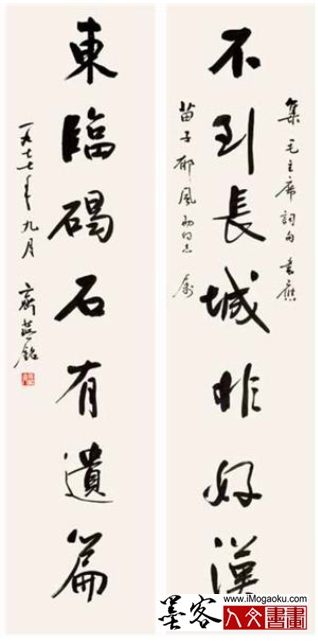 集毛主席詞句書應
不到長城非好漢
苗子郁風兩同志屬
東臨碣石有遺篇
一九七七年九月 齊燕銘
www.iMogaoku.com
墨客